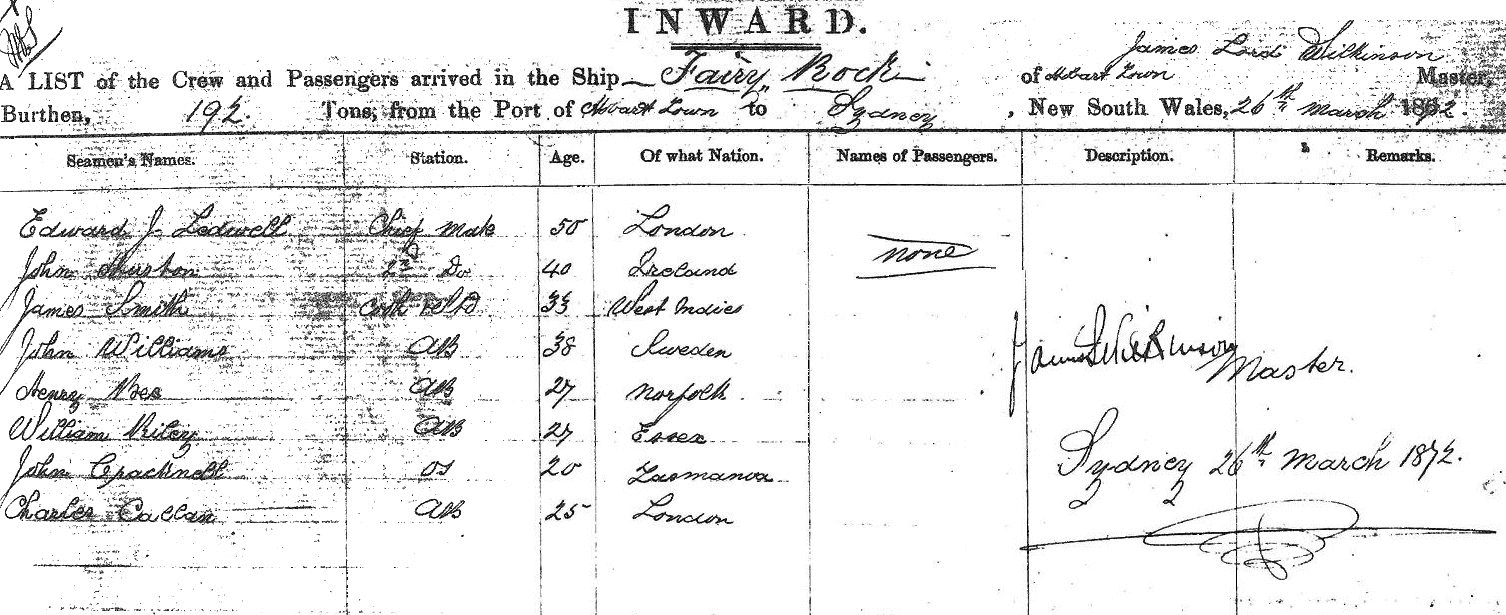 INWARD.
James Lord Wilkinson
A LIST of the Crew and Passengers arrived in the Ship "Fairy Rock" of Hobart Town Master,
Burthen, 192. Tons, from the Port of Hobart Town to Sydney, New South Wales, 26th March 1872.
Seamen's Names. Station. Age. Of what Nation. Names of Passengers. Description. Remarks.
Edward J. Ledwell Chief Mate 50 London
none
John 2nd Do 40 Ireland
James Smith Cook & Std 33 West Indies
John Williams AB 38 Sweden
James L Wilkinson Master.
Henry AB 27 Norfolk
William Riley AB 27 Essex
Sydney 26th March 1872.
John OS 20 Tasmania
Charles Callan AB 25 London